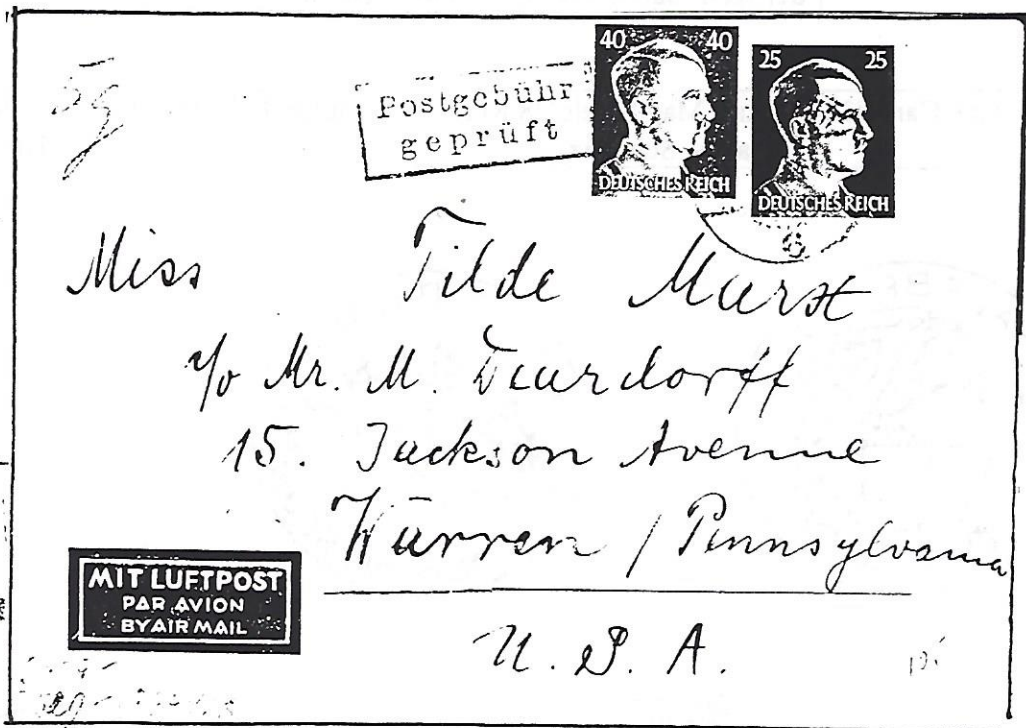 5g
Postgebühr
geprüft
40 40
DEUTSCHES REICH
25 25
DEUTSCHES REICH
8
Miss Tilde Marst
c/o Mr. M. Deardorff
15. Jackson Avenue
Warren / Pennsylvania
U. S. A.
MIT LUFTPOST
PAR AVION
BY AIR MAIL